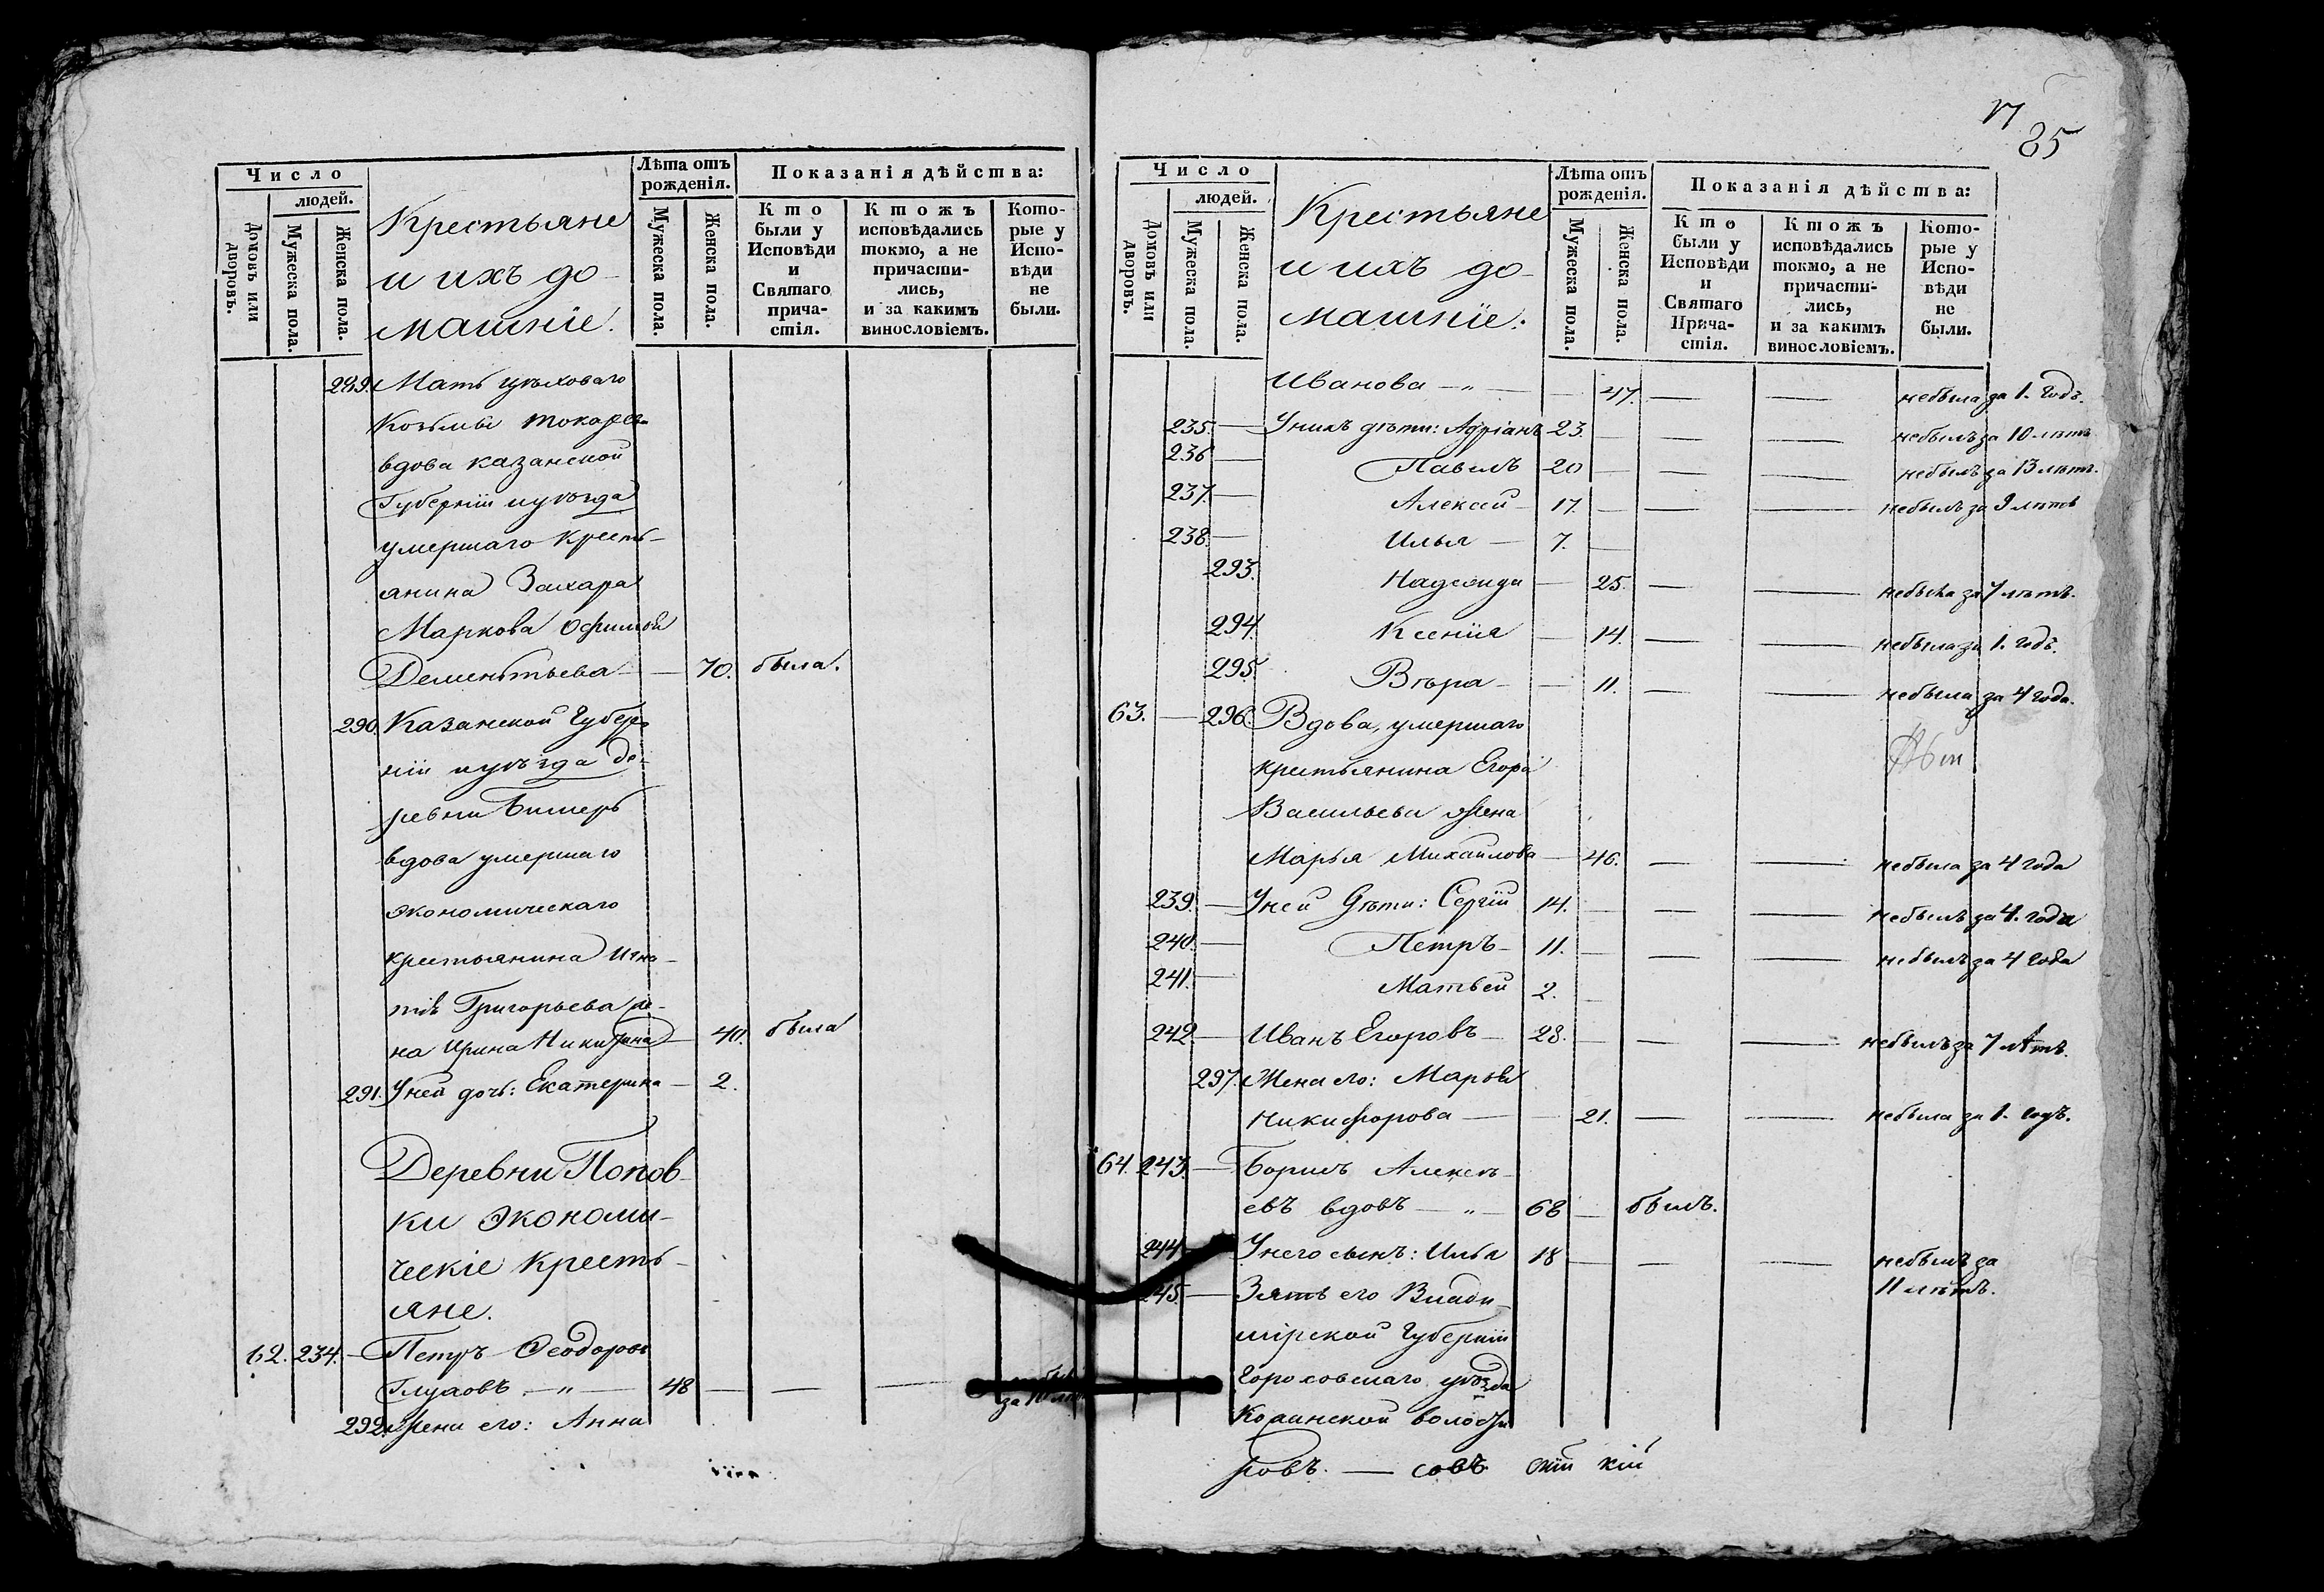 Число
людей.
Домовъ или дворовъ.
Мужеска пола.
Женска пола.
Крестьяне
и ихъ до-
машніе.
Лѣта отъ
рожденія.
Мужеска пола.
Женска пола.
Показанія дѣйства:
Кто
были у
Исповѣди
и
Святаго
прича-
стія.
Ктожъ
исповѣдались
токмо, а не
причасти-
лись,
и за какимъ
винословіемъ.
Кото-
рые у
Испо-
вѣди
не
были.
289. Мать цѣховаго
Козьмы Токарева
вдова казанской
Губерніи и уѣзда
умершаго кресть-
янина Захара
Маркова
Дементьева — 70. была.
290. Казанской Губер-
ніи и уѣзда де-
ревни
вдова умершаго
экономическаго
крестьянина Игна-
тія Григорьева же-
на Ирина Никитина — 40. была
291. У ней дочь: Екатерина — 2.
Деревни Попов-
ки экономи-
ческіе кресть-
яне.
62. 234. — Петръ Ѳеодоровъ
Глуховъ — " — 48 — — —
за 10 лѣтъ
292. Жена его: Анна
17
85
Число
людей.
Домовъ или дворовъ.
Мужеска пола.
Женска пола.
Крестьяне
и ихъ до-
машніе.
Лѣта отъ
рожденія.
Мужеска пола.
Женска пола.
Показанія дѣйства:
Кто
были у
Исповѣди
и
Святаго
Прича-
стія.
Ктожъ
исповѣдались
токмо, а не
причасти-
лись,
и за какимъ
винословіемъ.
Кото-
рые у
Испо-
вѣди
не
были.
Иванова — " — — 47. — — небыла за 1. годъ.
235. — У нихъ дѣти: Адріанъ 23. — — — небылъ за 10 лѣтъ
236 — Павелъ 20 — — — небылъ за 13 лѣтъ.
237. — Алексей — 17. — — — небылъ за 9 лѣтъ
238. — Илья — 7. —
293. Надежда — 25. — — небыла за 7 лѣтъ.
294. Ксенія — 14. — — небыла за 1. годъ.
295. Вѣра — — 11. — — небыла за 4 года.
63. — 296. Вдова, умершаго
крестьянина Егора
Васильева жена
Марья Михайлова — 46. — — небыла за 4 года
239. — У ней дѣти: Сергій 14. — — — небылъ за 4. года
240. — Петръ — 11. — — — небылъ за 4 года
241. — Матвей 2. —
242. — Иванъ Егоровъ — 28. — — — небылъ за 7 лѣтъ.
297. Жена его: Марья
Никифорова — — 21. — — небыла за 1. годъ.
64. 243. — Борисъ Алексѣ-
евъ вдовъ — " — 68 — былъ.
244 — У него сынъ: Илья 18 — — — небылъ за
11 лѣтъ.
245. — Зять его Влади-
мірской Губерніи
Гороховскаго уѣзда
волости
ровъ. — совъ скій кій